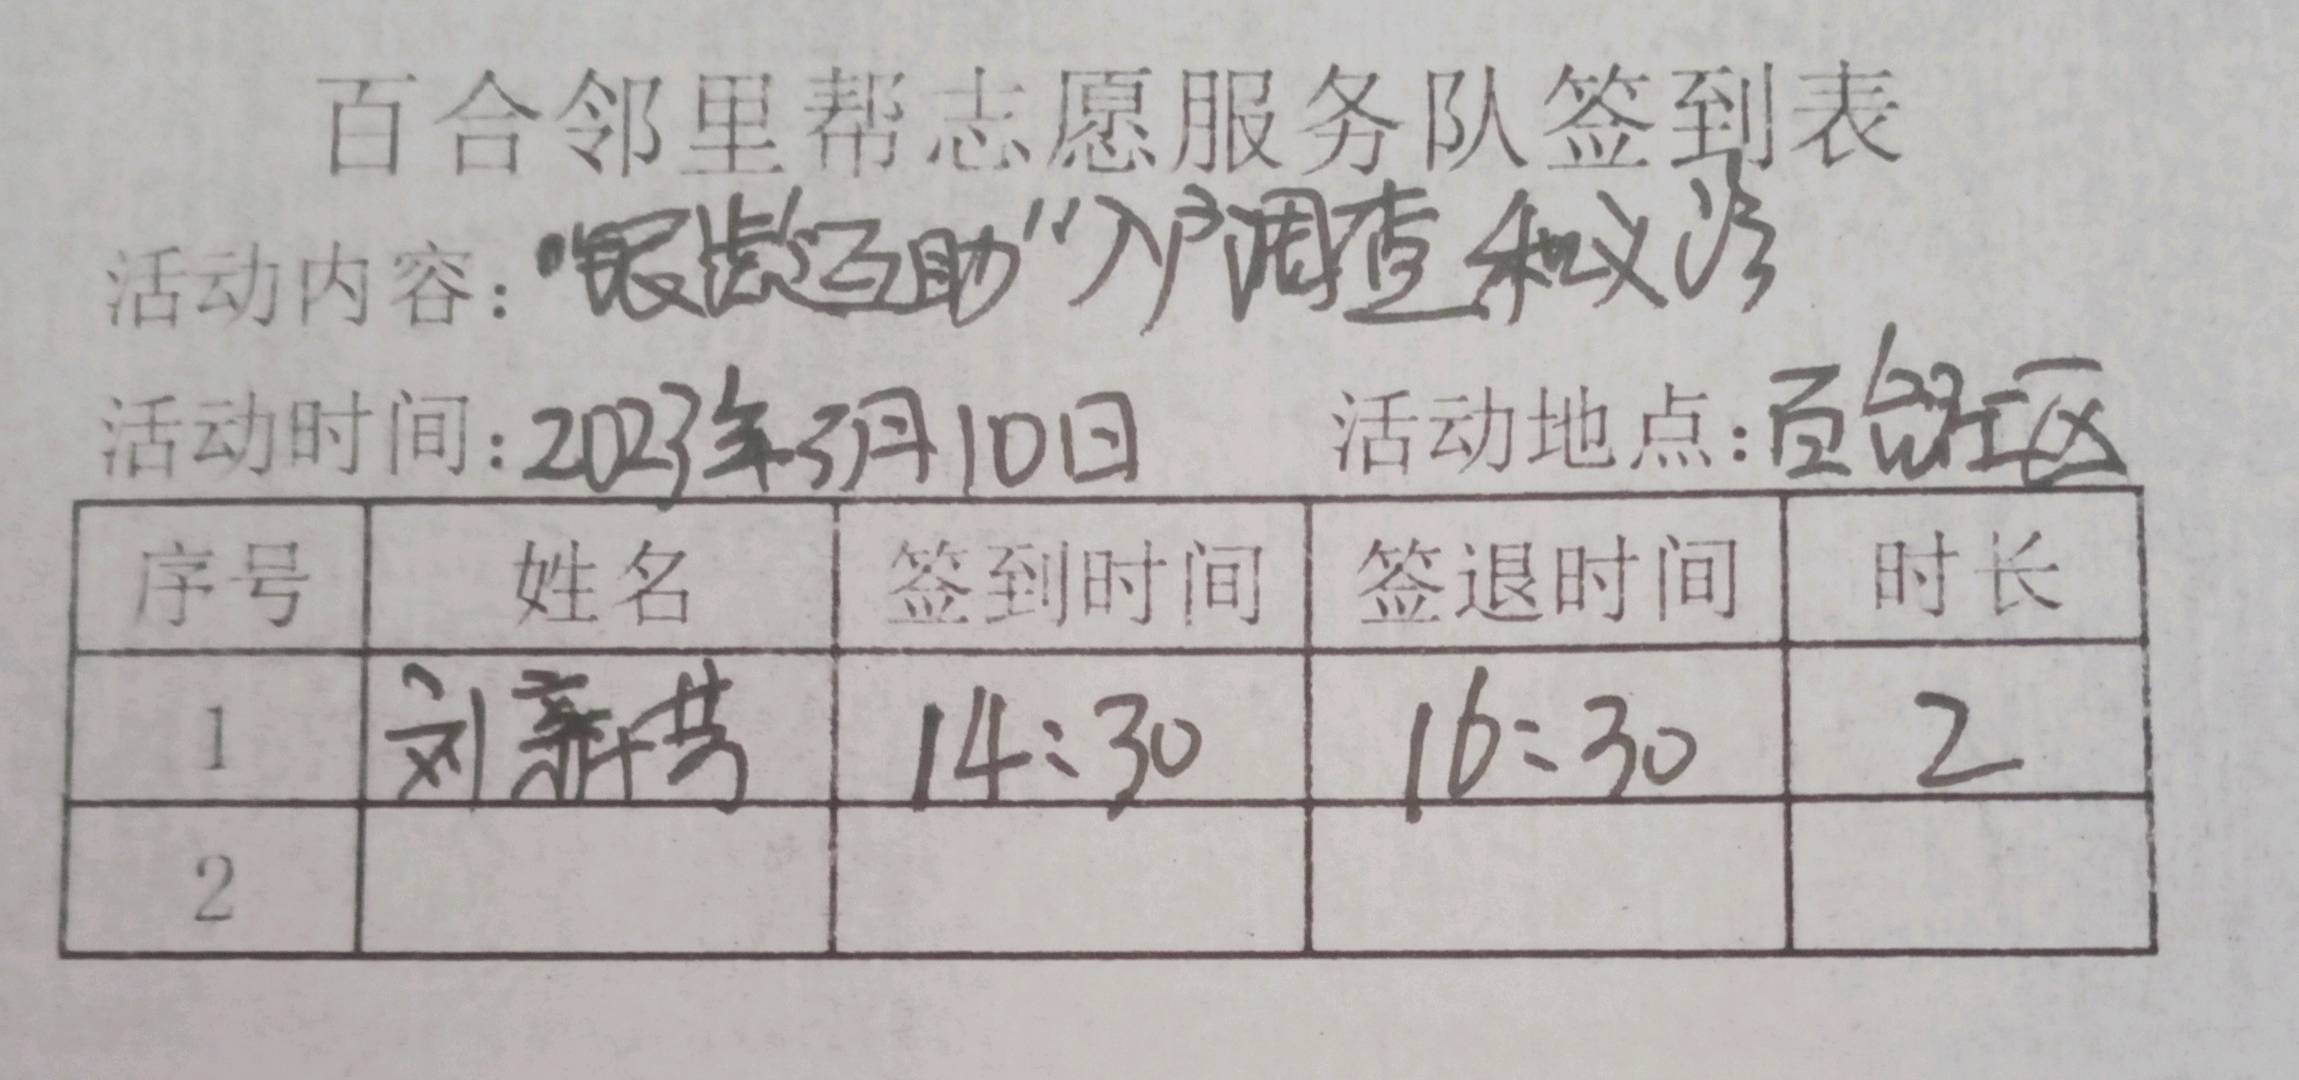 百合邻里帮志愿服务队签到表
活动内容："银龄互助"入户调查和义诊
活动时间：2023年3月10日 活动地点：百合社区
序号 姓名 签到时间 签退时间 时长
1 刘 14:30 16:30 2
2